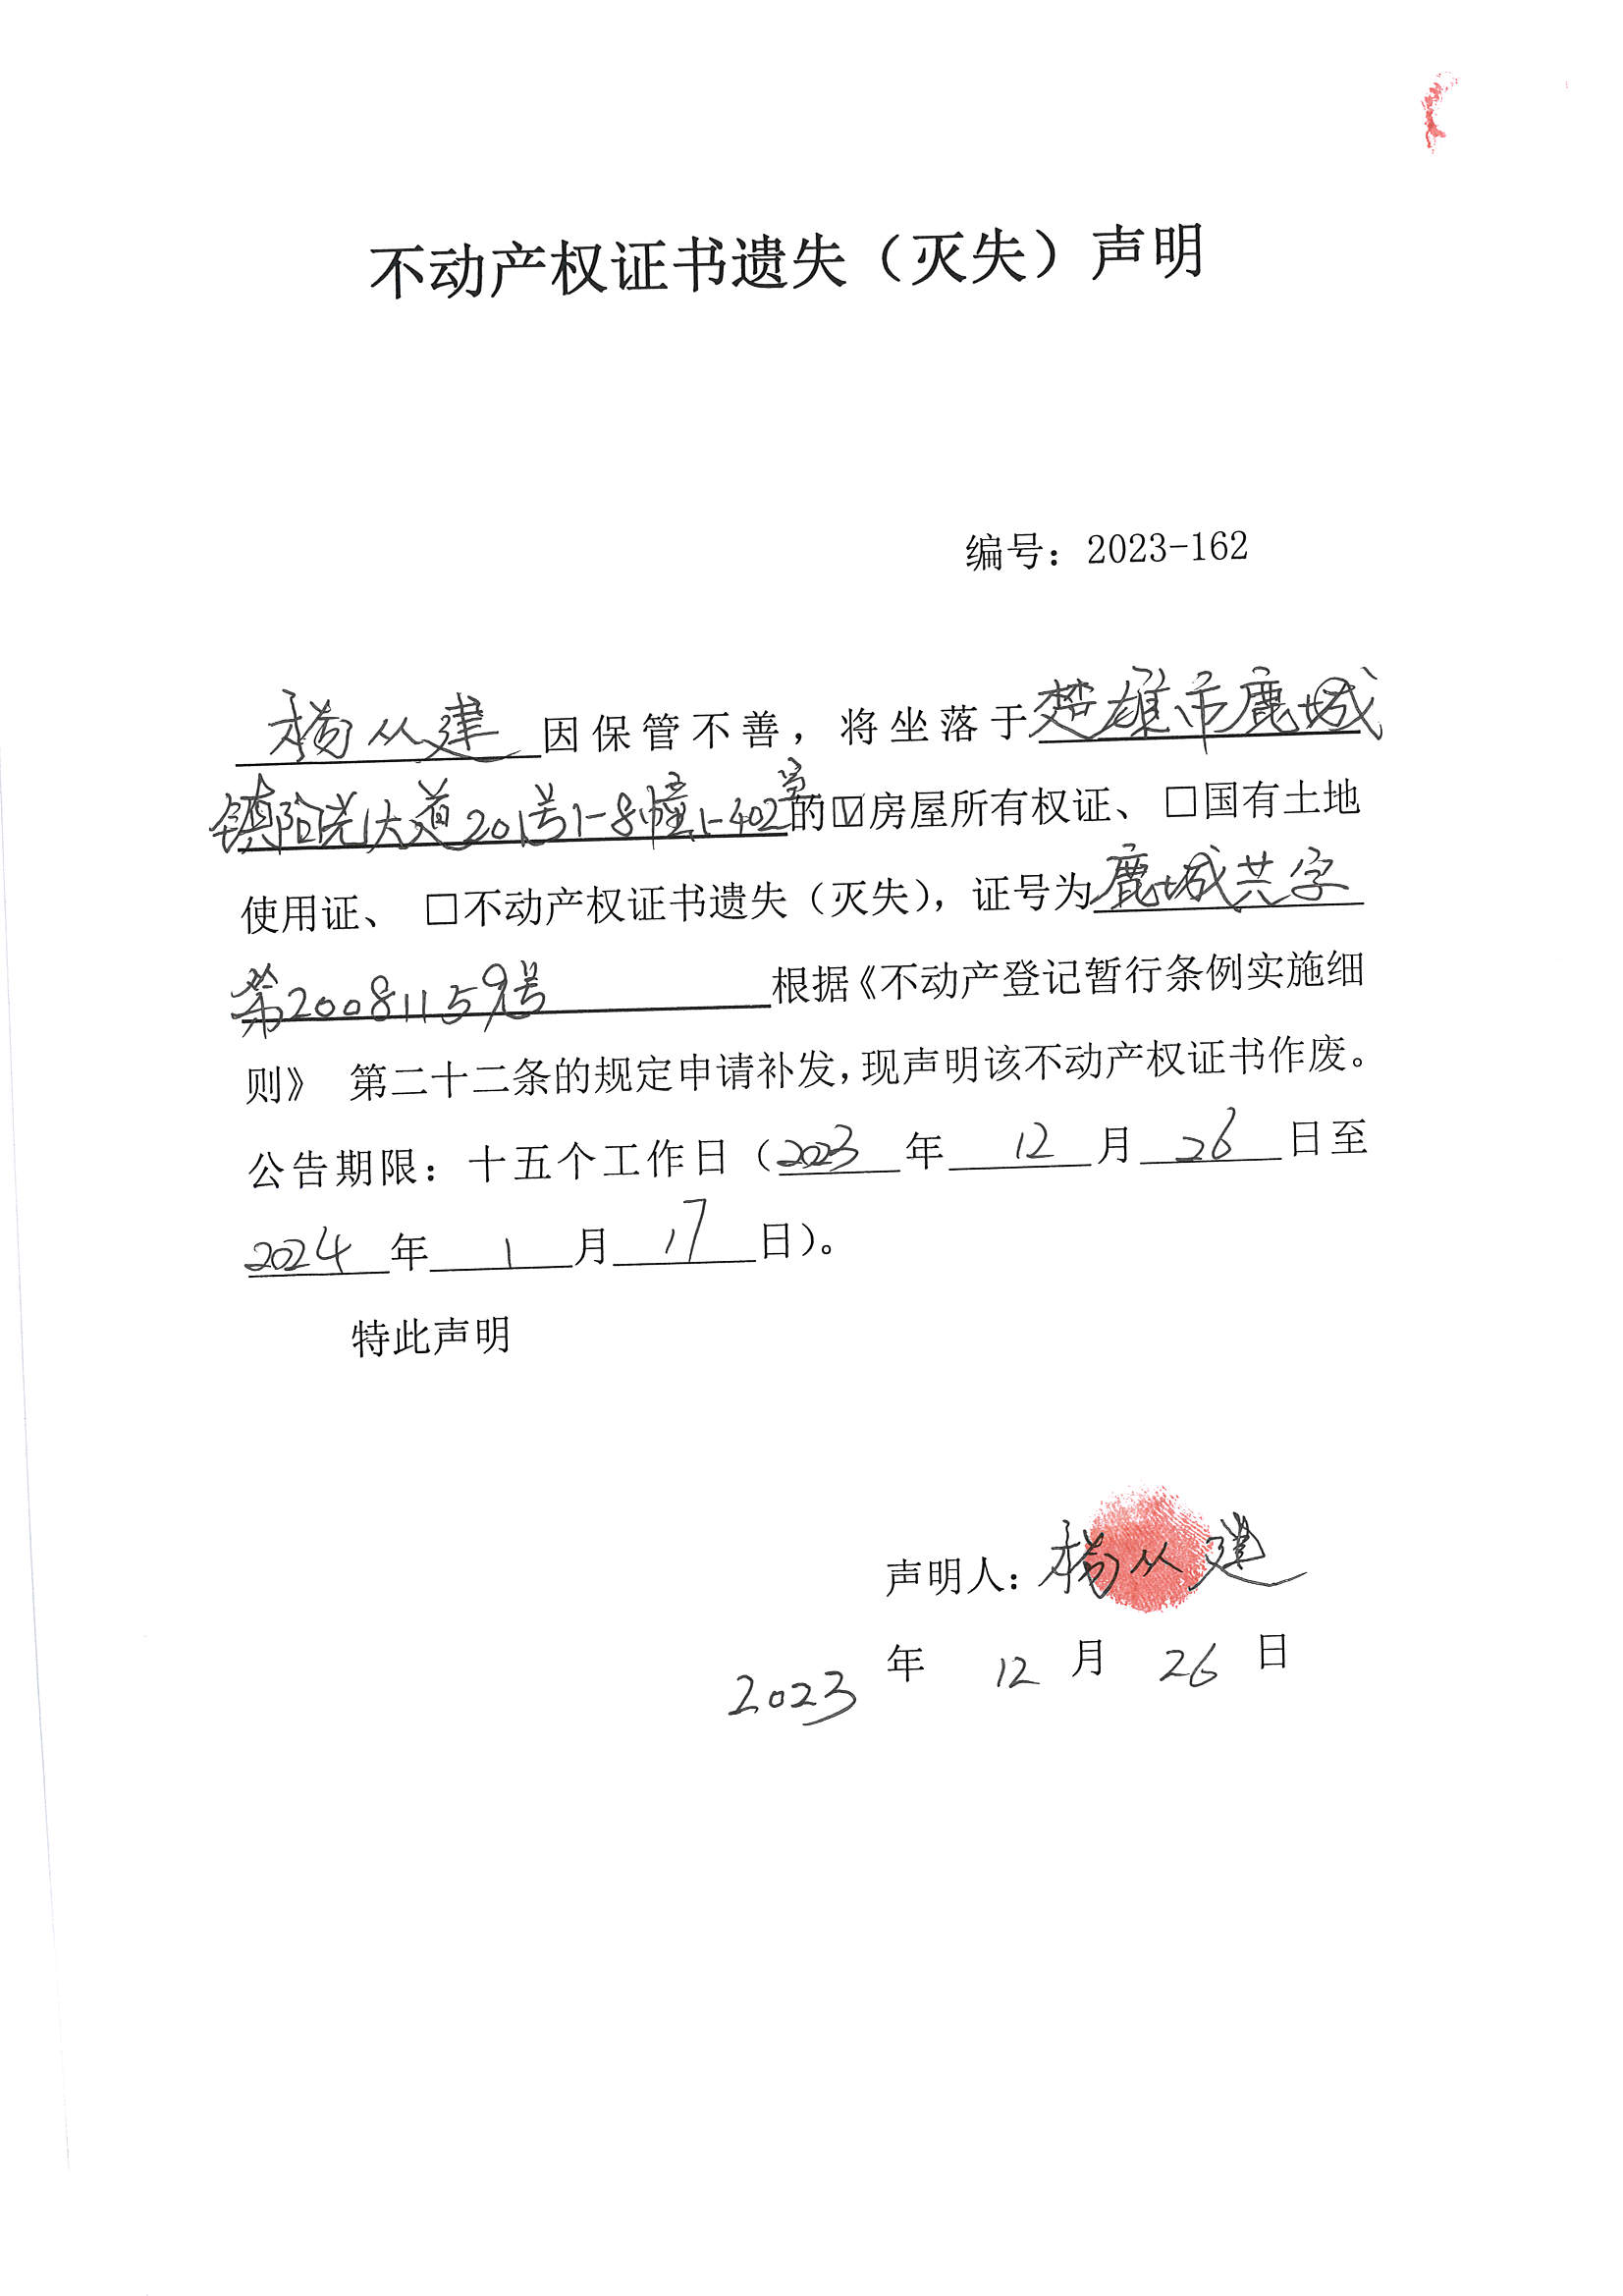 不动产权证书遗失（灭失）声明
编号：2023-162
杨从建因保管不善，将坐落于楚雄市鹿城
镇阳光大道201号1-8幢1-402室的☑房屋所有权证、□国有土地
使用证、 □不动产权证书遗失（灭失），证号为鹿城共字
第20081159号根据《不动产登记暂行条例实施细
则》 第二十二条的规定申请补发，现声明该不动产权证书作废。
公告期限：十五个工作日（2023年12月26日至
2024年1月17日）。
特此声明
声明人：杨从建
2023年12月26日